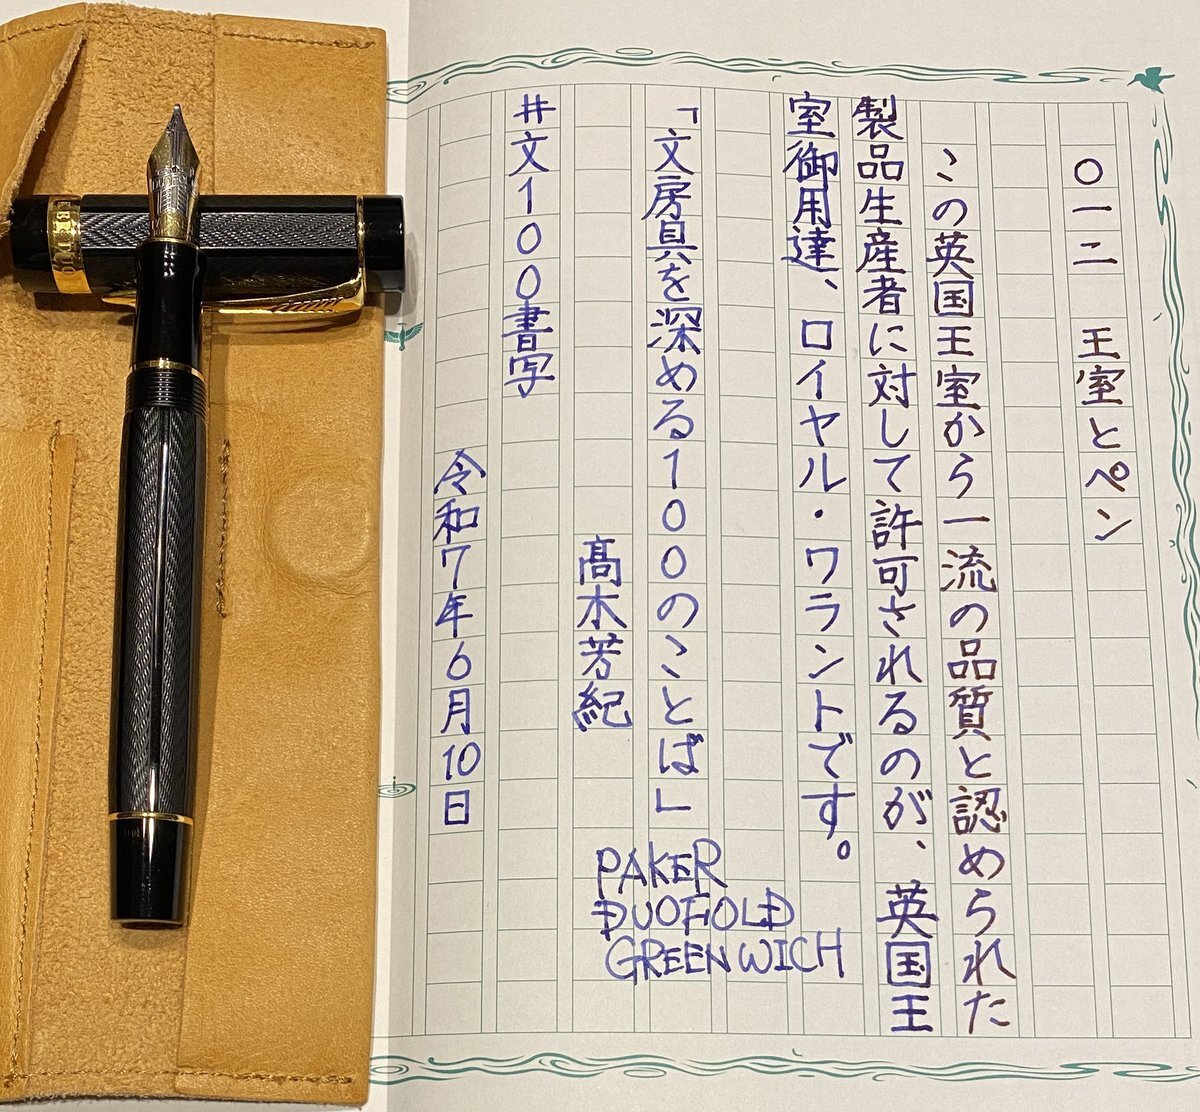 〇一二　王室とペン
この英国王室から一流の品質と認められた
製品生産者に対して許可されるのが、英国王
室御用達、ロイヤル・ワラントです。
「文房具を深める100のことば」
髙木芳紀
#文100書写
令和7年6月10日
PAKER
DUOFOLD
GREENWICH